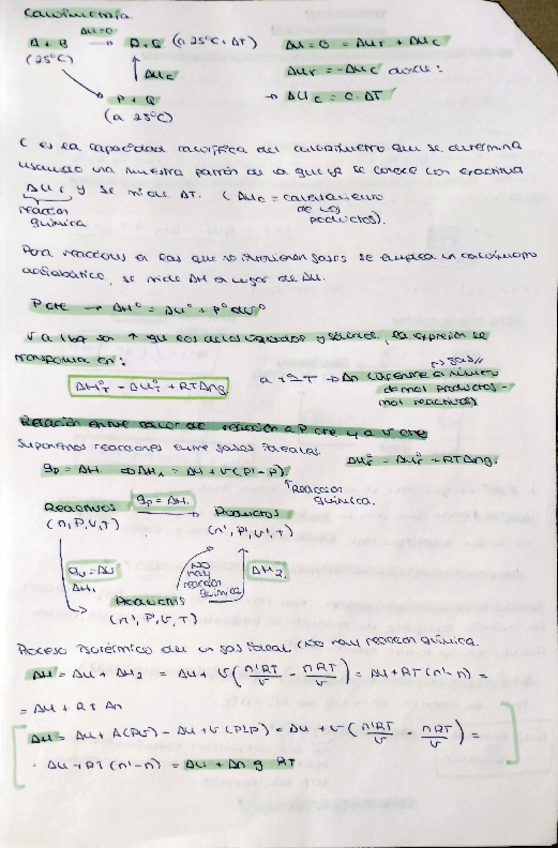 Calorimetría
ΔU=0
A + B → P + Q (a 25ºC + ΔT) ΔU = 0 = ΔUr + ΔUc
(25ºC)
↑ ΔUc ΔUr = -ΔUc donde:
P + Q → ΔUc = C · ΔT
(a 25ºC)
C es la capacidad calorífica del calorímetro que se determina
usando una muestra patrón de la que ya se conoce con exactitud
ΔUr y se mide ΔT. (ΔUc = calentamiento
reacción de los
química productos).
Para reacciones en las que intervienen gases se emplea un calorímetro
adiabático, se mide ΔH en lugar de ΔU.
P cte → ΔHº = ΔUº + PºΔVº
V a los son ↑ que los de los líquidos y sólidos, la expresión se
transforma en:
ΔHºT = ΔUºT + RTΔng a 1 T → Δn (diferente al número
gas
de mol productos -
mol reactivos)
Relación entre calor de reacción a P cte y a V cte
Suponemos reacciones entre gases ideales. ΔHºT = ΔUºT + RTΔng.
qp = ΔH ⇒ ΔH1 = ΔU + V(P' - P).
Reacción
química.
Reactivos qp = ΔH → Productos
(n, P, V, T) (n', P', V', T)
qv = ΔU
ΔH1
No
hay
reacción
química
ΔH2
Productos
(n', P, V, T)
Proceso isotérmico de un gas ideal (No hay reacción química.
ΔH = ΔU + ΔH2 = ΔU + V(n'RT/V - nRT/V) = ΔU + RT(n' - n) =
= ΔU + RTΔn
ΔH = ΔU + Δ(PV) = ΔU + V(P'-P) = ΔU + V(n'RT/V - nRT/V) =
= ΔU + RT(n' - n) = ΔU + Δn g RT